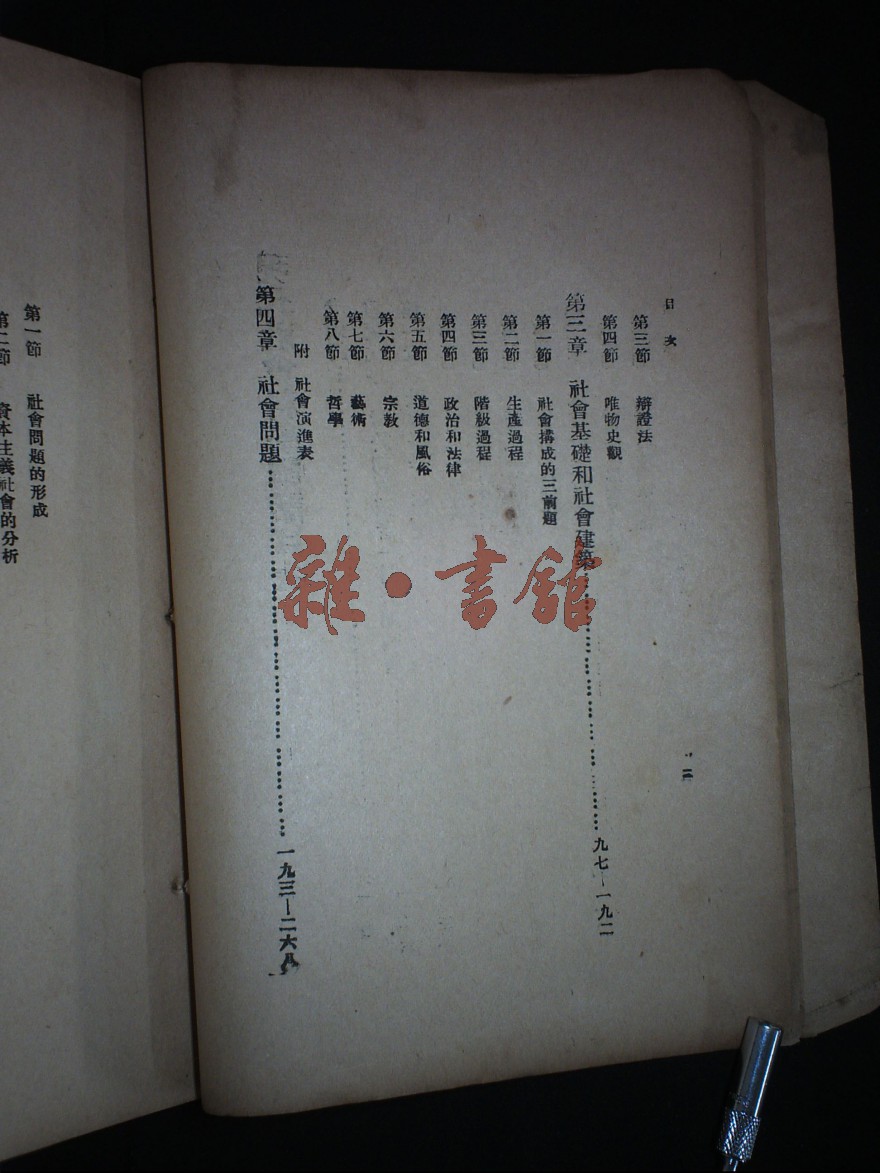 目次
二
第三節 辯證法
第四節 唯物史觀
第三章 社會基礎和社會建築……………………九七—一九二
第一節 社會構成的三前題
第二節 生產過程
第三節 階級過程
第四節 政治和法律
第五節 道德和風俗
第六節 宗教
第七節 藝術
第八節 哲學
附 社會演進表
第四章 社會問題……………………………………一九三—二六八
第一節 社會問題的形成
第二節 資本主義社會的分析
雜·書館